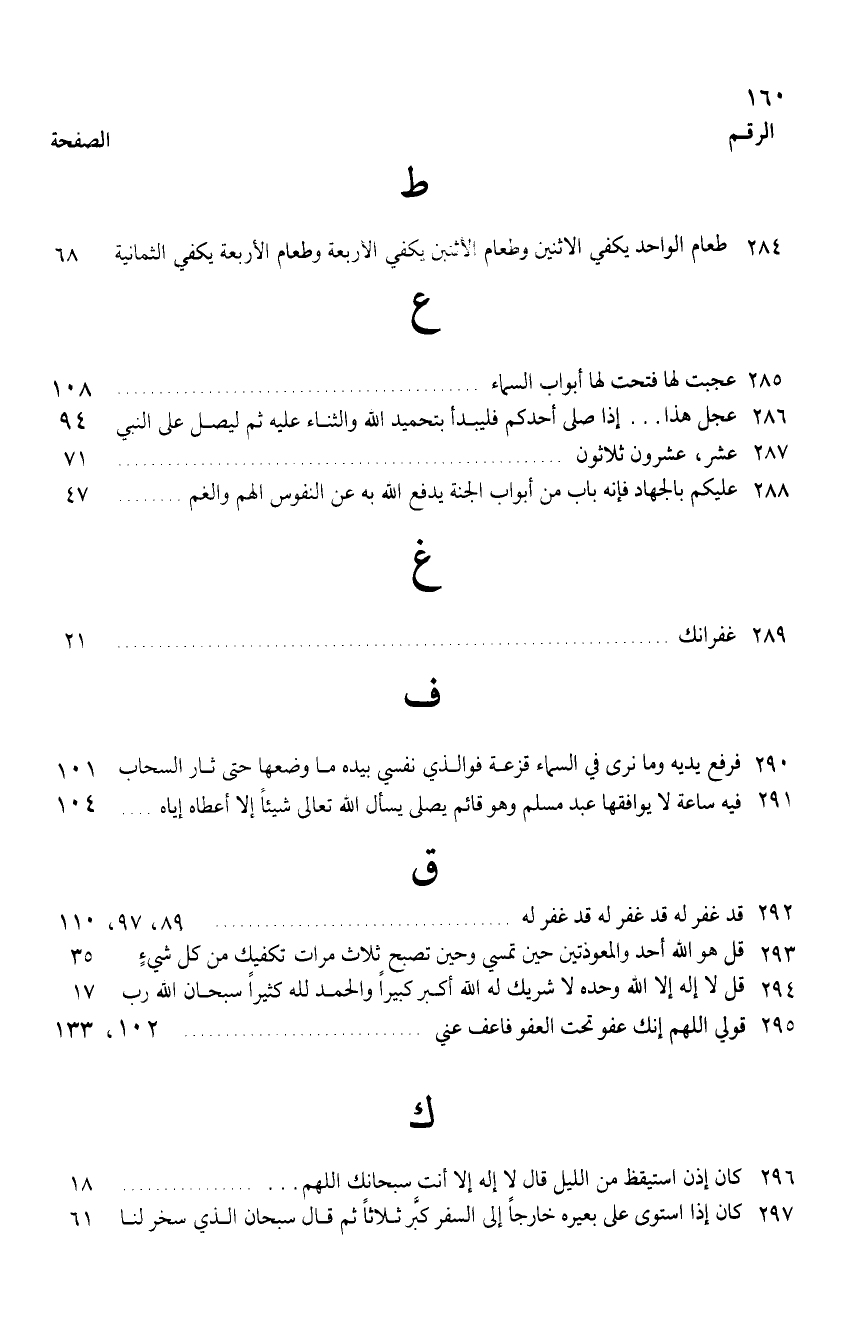 ١٦٠
الرقم الصفحة
ط
٢٨٤ طعام الواحد يكفي الاثنين وطعام الأثنين يكفي الأربعة وطعام الأربعة يكفي الثمانية ٦٨
ع
٢٨٥ عجبت لها فتحت لها أبواب السماء ........................................ ١٠٨
٢٨٦ عجل هذا... إذا صلى أحدكم فليبدأ بتحميد الله والثناء عليه ثم ليصل على النبي ٩٤
٢٨٧ عشر، عشرون ثلاثون ........................................ ٧١
٢٨٨ عليكم بالجهاد فإنه باب من أبواب الجنة يدفع الله به عن النفوس الهم والغم ........ ٤٧
غ
٢٨٩ غفرانك ........................................ ٢١
ف
٢٩٠ فرفع يديه وما نرى في السماء قزعة فوالذي نفسي بيده ما وضعها حتى ثار السحاب ١٠١
٢٩١ فيه ساعة لا يوافقها عبد مسلم وهو قائم يصلى يسأل الله تعالى شيئاً إلا أعطاه إياه .... ١٠٤
ق
٢٩٢ قد غفر له قد غفر له قد غفر له .................................... ٨٩، ٩٧، ١١٠
٢٩٣ قل هو الله أحد والمعوذتين حين تمسي وحين تصبح ثلاث مرات تكفيك من كل شيءٍ ٣٥
٢٩٤ قل لا إله إلا الله وحده لا شريك له الله أكبر كبيراً والحمد لله كثيراً سبحان الله رب ١٧
٢٩٥ قولي اللهم إنك عفو تحت العفو فاعف عني ............................. ١٠٢، ١٣٣
ك
٢٩٦ كان إذن استيقظ من الليل قال لا إله إلا أنت سبحانك اللهم... ................ ١٨
٢٩٧ كان إذا استوى على بعيره خارجاً إلى السفر كبَّر ثلاثاً ثم قال سبحان الذي سخر لنا ٦١